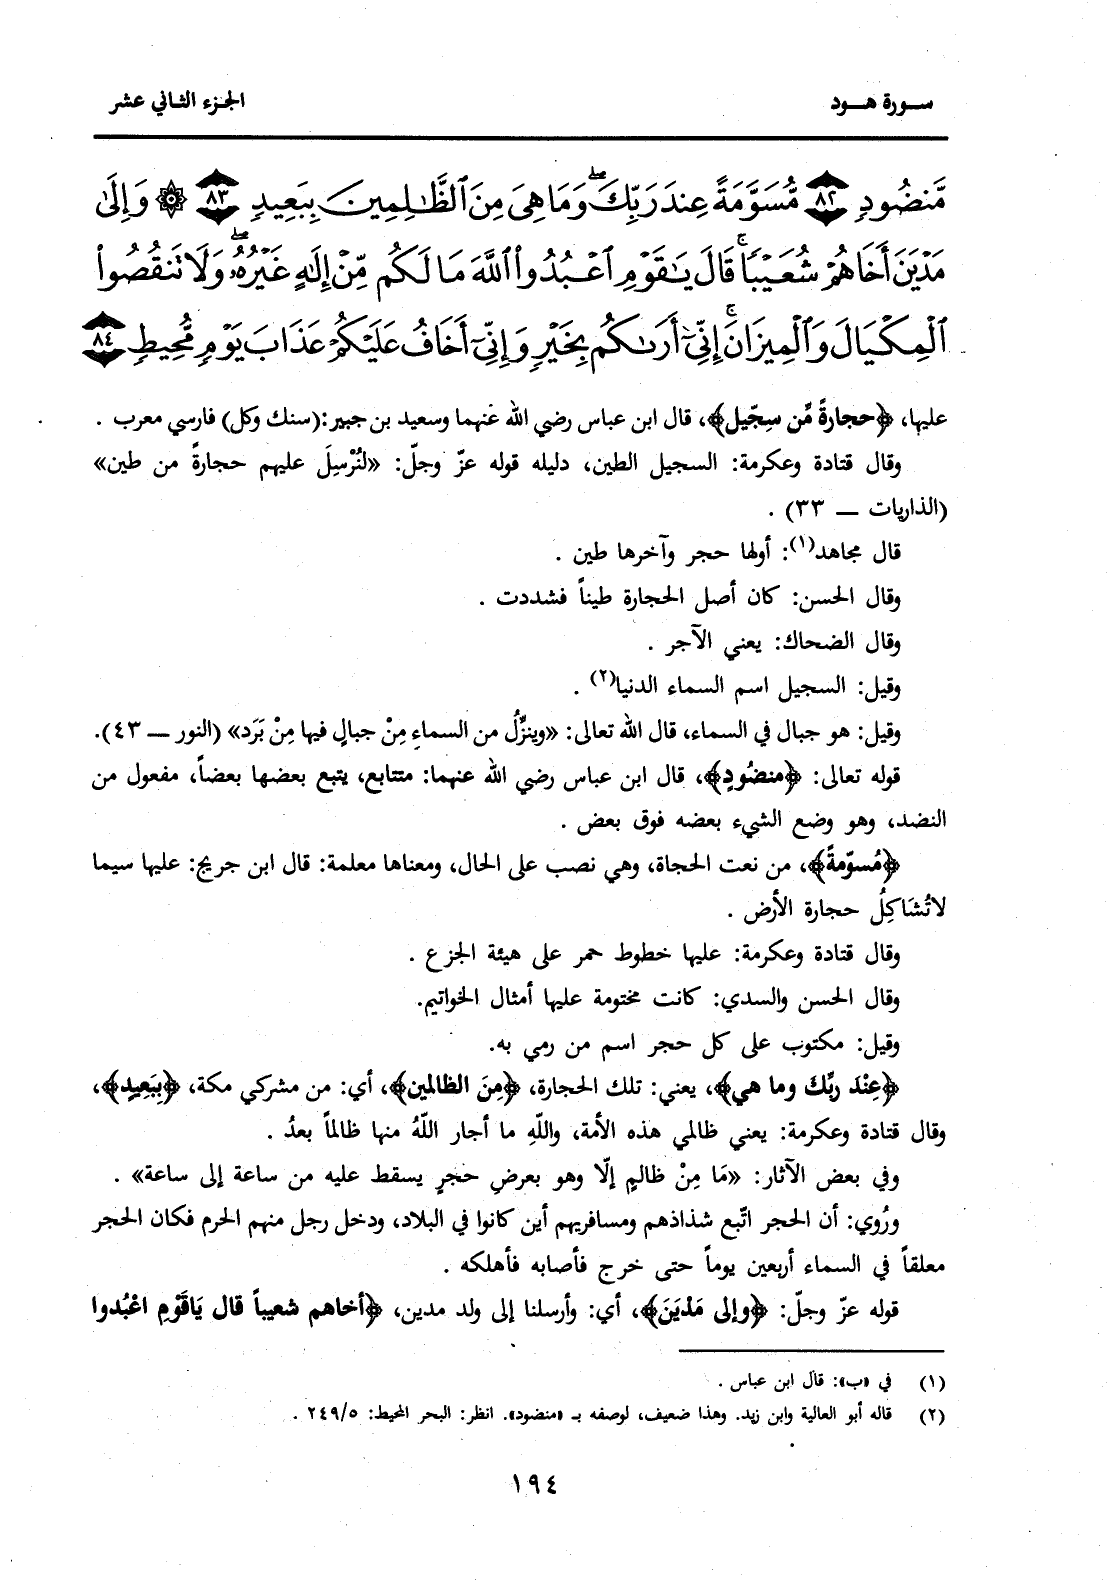 سورة هود
الجزء الثاني عشر
مَّنضُودٍ ٨٢ مُّسَوَّمَةً عِندَ رَبِّكَ ۖ وَمَا هِىَ مِنَ ٱلظَّٰلِمِينَ بِبَعِيدٍ ٨٣ ۞ وَإِلَىٰ
مَدْيَنَ أَخَاهُمْ شُعَيْبًا ۚ قَالَ يَٰقَوْمِ ٱعْبُدُوا۟ ٱللَّهَ مَا لَكُم مِّنْ إِلَٰهٍ غَيْرُهُۥ ۖ وَلَا تَنقُصُوا۟
ٱلْمِكْيَالَ وَٱلْمِيزَانَ ۚ إِنِّىٓ أَرَىٰكُم بِخَيْرٍ وَإِنِّىٓ أَخَافُ عَلَيْكُمْ عَذَابَ يَوْمٍ مُّحِيطٍ ٨٤
عليها، ﴿حجارةً مِّن سِجّيل﴾، قال ابن عباس رضي الله عنهما وسعيد بن جبير:(سنك وكل) فارسي معرب .
وقال قتادة وعكرمة: السجيل الطين، دليله قوله عزّ وجلّ: «لنُرْسِلَ عليهم حجارةً من طين»
(الذاريات — ٣٣) .
قال مجاهد(١): أولها حجر وآخرها طين .
وقال الحسن: كان أصل الحجارة طيناً فشددت .
وقال الضحاك: يعني الآجر .
وقيل: السجيل اسم السماء الدنيا(٢) .
وقيل: هو جبال في السماء، قال الله تعالى: «وينزِّلُ من السماءِ مِنْ جبالٍ فيها مِنْ بَرَد» (النور — ٤٣).
قوله تعالى: ﴿منضُودٍ﴾، قال ابن عباس رضي الله عنهما: متتابع، يتبع بعضها بعضاً، مفعول من
النضد، وهو وضع الشيء بعضه فوق بعض .
﴿مُسوّمةً﴾، من نعت الحجاة، وهي نصب على الحال، ومعناها معلمة: قال ابن جريج: عليها سيما
لاتُشَاكِلُ حجارة الأرض .
وقال قتادة وعكرمة: عليها خطوط حمر على هيئة الجزع .
وقال الحسن والسدي: كانت مختومة عليها أمثال الخواتيم.
وقيل: مكتوب على كل حجر اسم من رمي به.
﴿عِنْدَ ربِّكَ وما هي﴾، يعني: تلك الحجارة، ﴿مِنَ الظالمين﴾، أي: من مشركي مكة، ﴿بِبَعِيدٍ﴾،
وقال قتادة وعكرمة: يعني ظالمي هذه الأمة، واللهِ ما أجار اللّهُ منها ظالماً بعدُ .
وفي بعض الآثار: «مَا مِنْ ظالمٍ إلّا وهو بعرضِ حجرٍ يسقط عليه من ساعة إلى ساعة» .
ورُوي: أن الحجر اتّبع شذاذهم ومسافريهم أين كانوا في البلاد، ودخل رجل منهم الحرم فكان الحجر
معلقاً في السماء أربعين يوماً حتى خرج فأصابه فأهلكه .
قوله عزّ وجلّ: ﴿وإلى مَدْيَنَ﴾، أي: وأرسلنا إلى ولد مدين، ﴿أخاهم شعيباً قال يَاقَوْمِ اعْبُدوا
(١) في «ب»: قال ابن عباس .
(٢) قاله أبو العالية وابن زيد. وهذا ضعيف، لوصفه بـ «منضود». انظر: البحر المحيط: ٢٤٩/٥ .
١٩٤